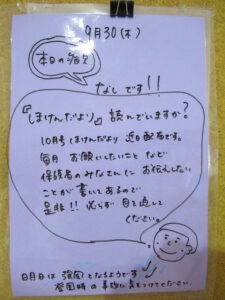 9月30(木)
本日の病気
なしです!!
『しまけんだより』読んでいますか?
10月号しまけんだより 近日配布です。
毎月 お願いしたいこと など
保護者のみなさんに お伝えしたい
ことが 書いてあるので
是非!! 必らず 目を通して
ください。
明日は 強風となるようです
登園時の 事故に 気をつけてください